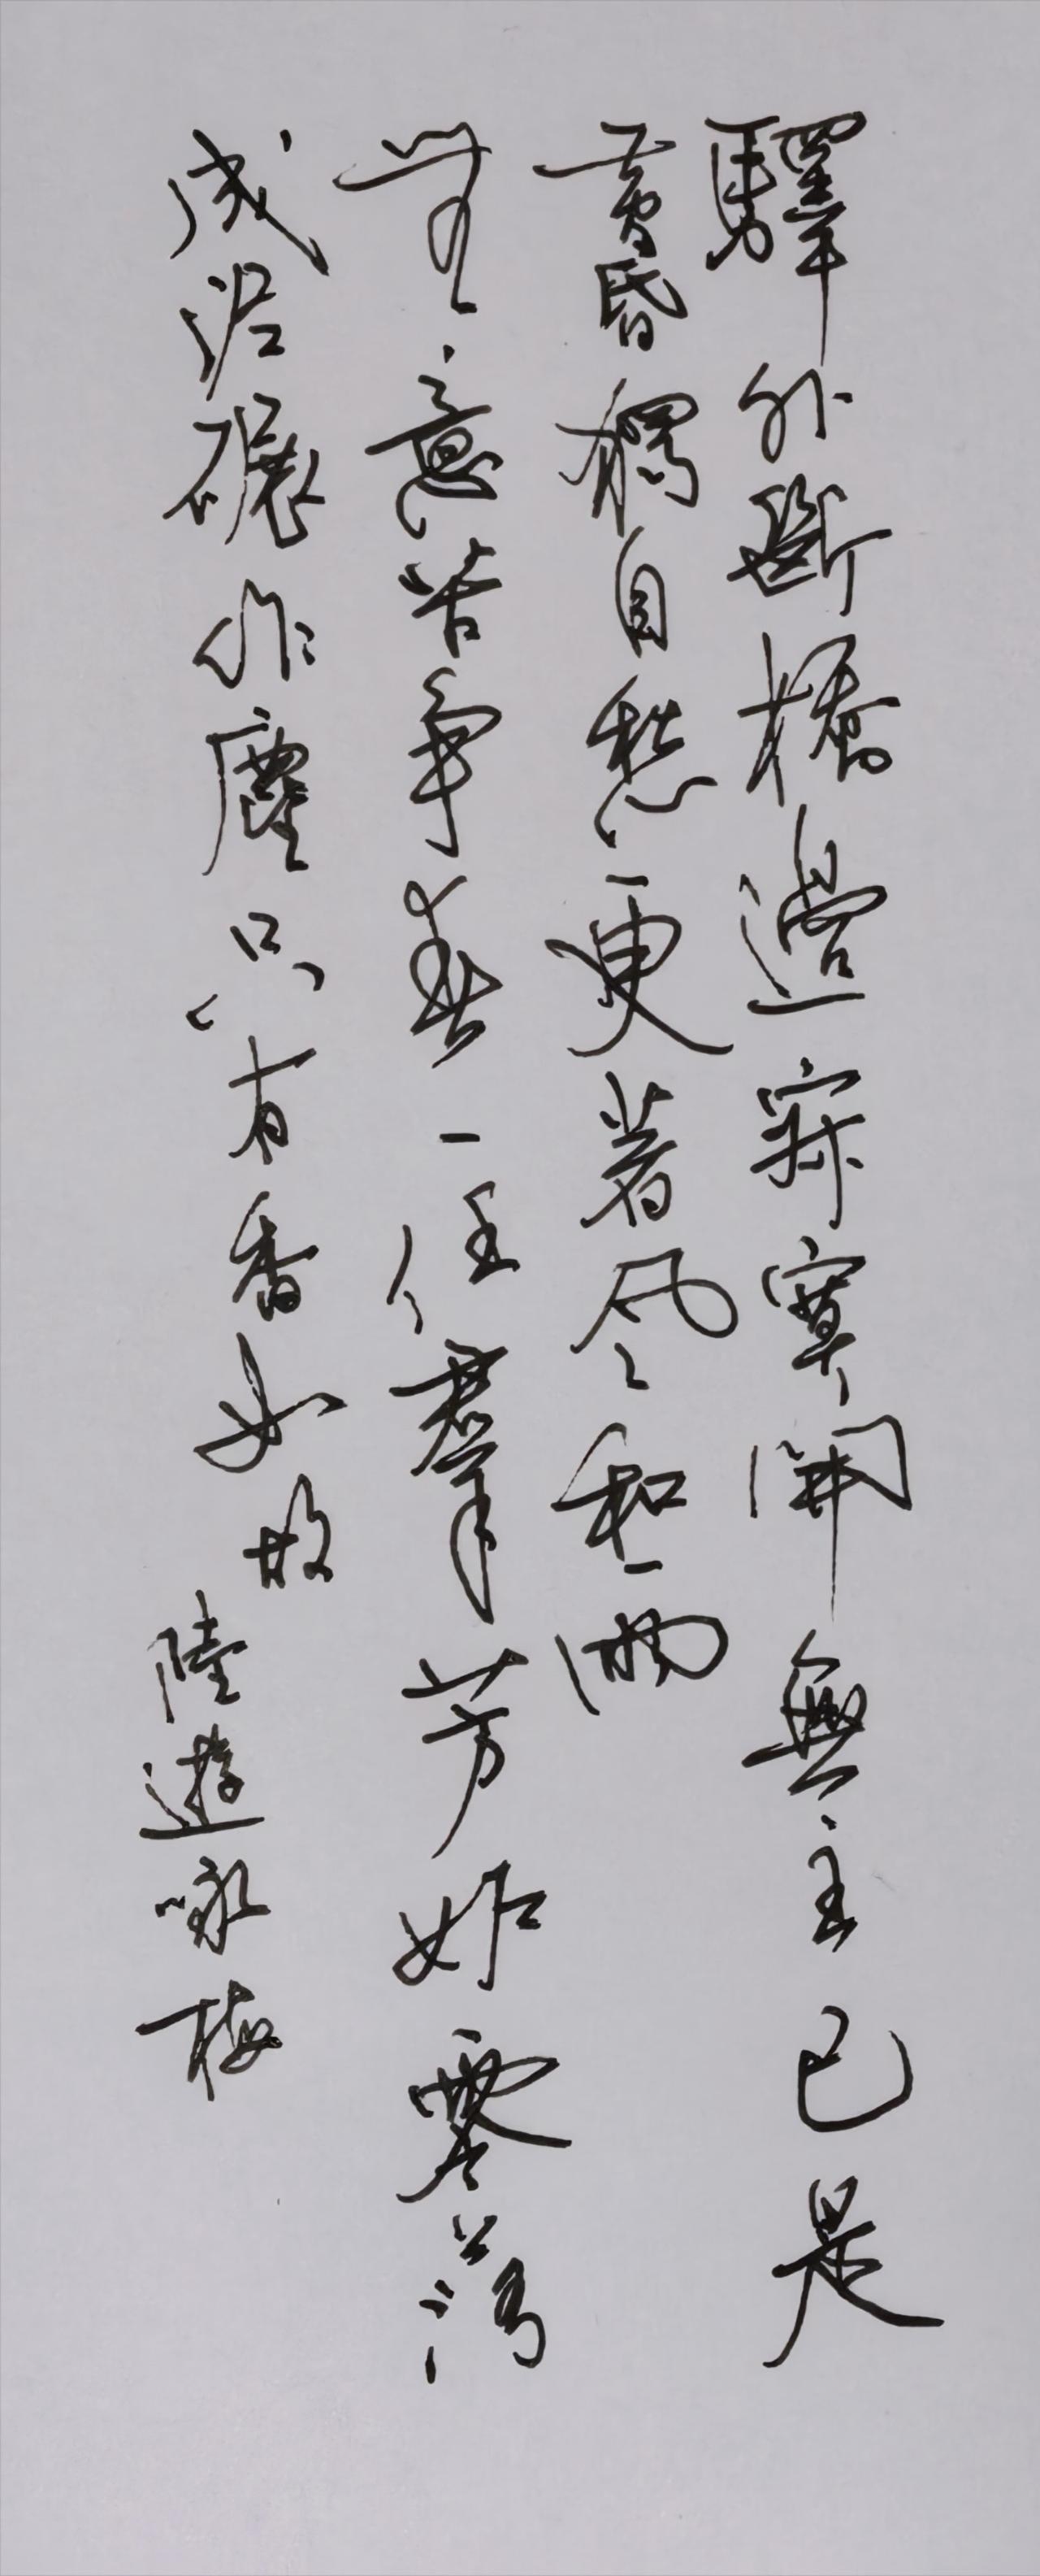 驛外斷橋邊寂寞開無主已是
黃昏獨自愁更著风和雨
無意苦爭春一任羣芳妒零落
成泥碾作塵只有香如故
陸遊咏梅